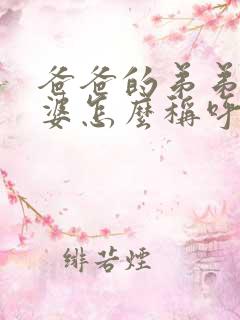 爸爸的弟弟
婆怎麼稱呼
緋若煙